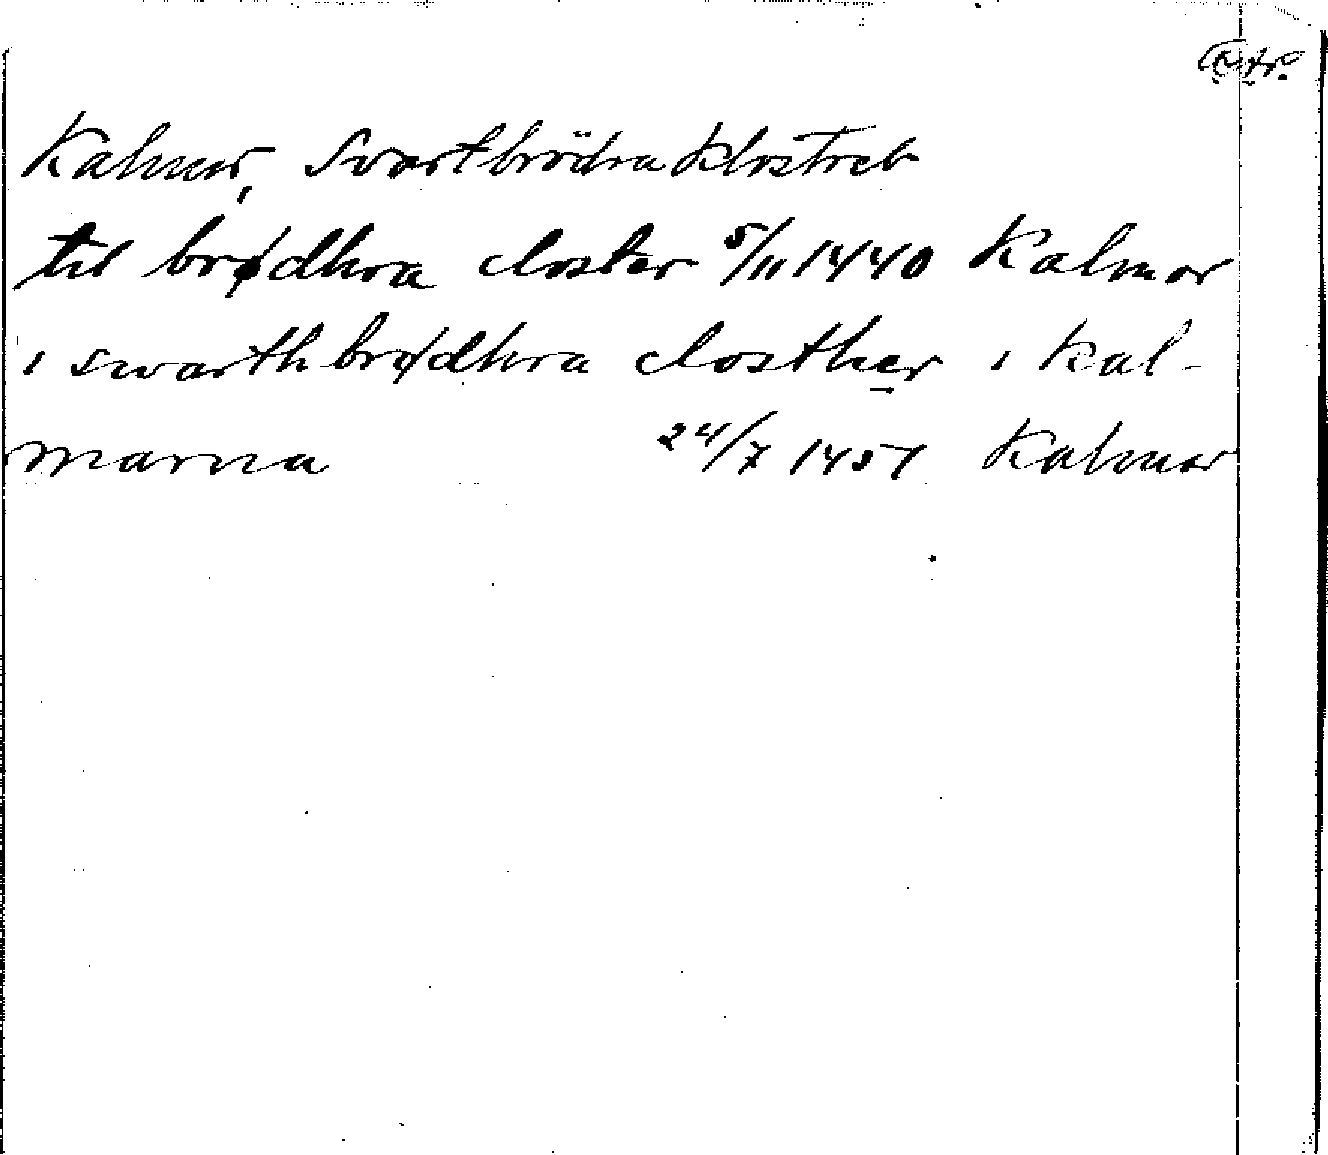 Kalmar, Svartbrödraklostret
til brødhra closter 5/11 1440 Kalmar
i swarthbrødhra closther i kal-
marna 24/7 1451 Kalmar